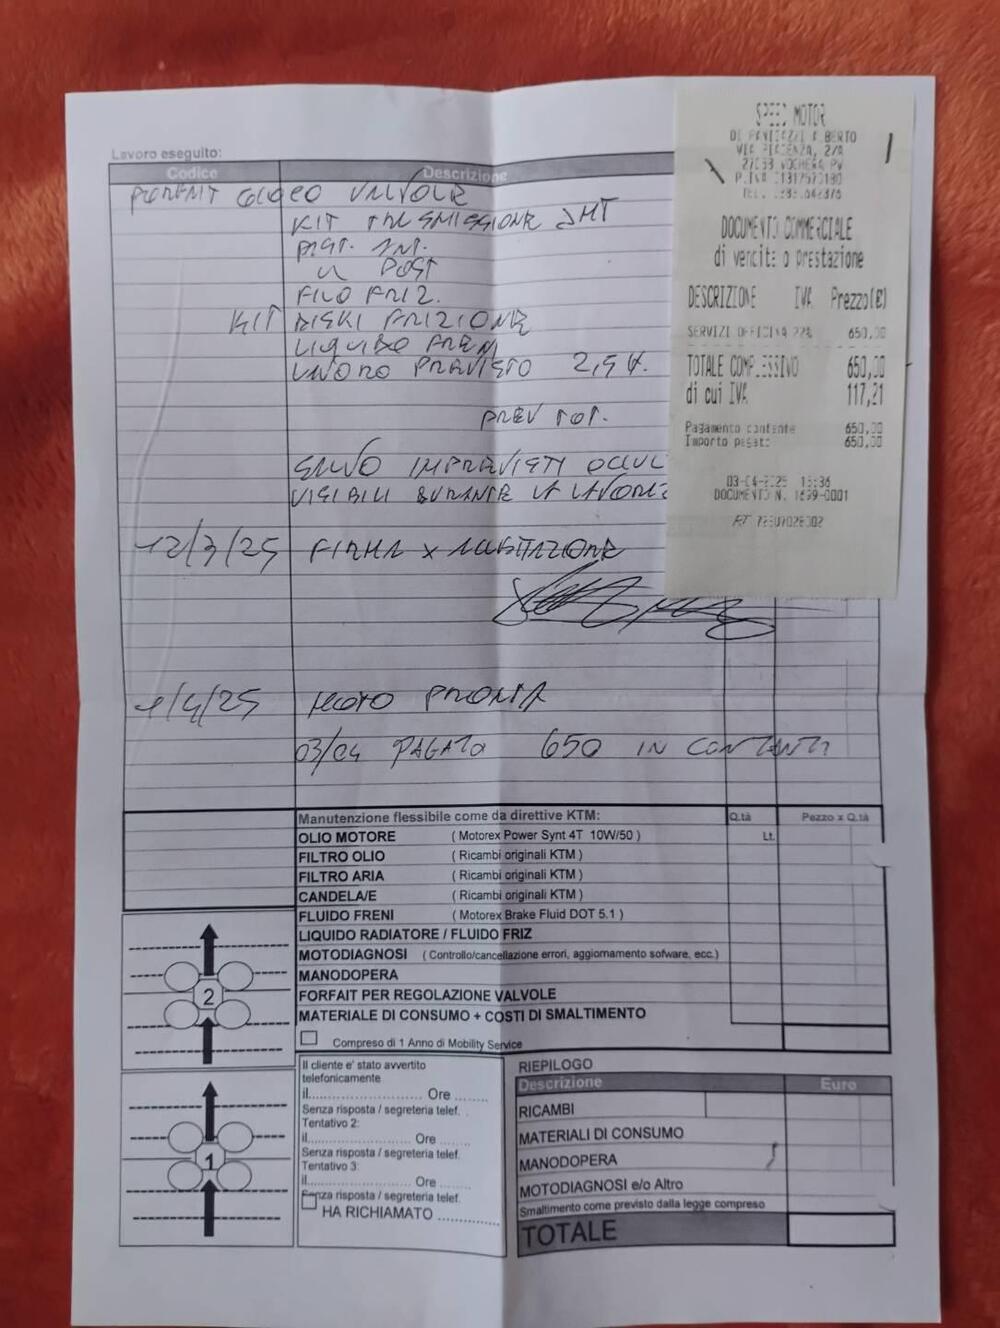 Lavoro eseguito:
Codice Descrizione
FORFAIT GIOCO VALVOLE
KIT TRASMISSIONE JMT
PAST. ANT.
" POST
FILO FRIZ.
KIT DISKI FRIZIONE
LIQUIDO FRENI
LAVORO PREVISTO 2,5 H.
PREV TOT.
SALVO IMPREVISTI OCCUL
VISIBILI DURANTE LA LAVORAZ
12/3/25 FIRMA X ACCETTAZIONE
1/4/25 MOTO PRONTA
03/04 PAGATO 650 IN CONTANTI
SPEED MOTOR
VIA PIACENZA, 2/A
27058 VOGHERA PV
DOCUMENTO COMMERCIALE
di vendita o prestazione
DESCRIZIONE IVA Prezzo(€)
SERVIZI OFFICINA 22% 650,00
TOTALE COMPLESSIVO 650,00
di cui IVA 117,21
Pagamento contante 650,00
Importo pagato 650,00
03-04-2025
DOCUMENTO N. 1699-0001
Manutenzione flessibile come da direttive KTM: Q.tà Pezzo x Q.tà
OLIO MOTORE ( Motorex Power Synt 4T 10W/50 ) Lt.
FILTRO OLIO ( Ricambi originali KTM )
FILTRO ARIA ( Ricambi originali KTM )
CANDELA/E ( Ricambi originali KTM )
FLUIDO FRENI ( Motorex Brake Fluid DOT 5.1 )
LIQUIDO RADIATORE / FLUIDO FRIZ
MOTODIAGNOSI ( Controllo/cancellazione errori, aggiornamento sofware, ecc.)
MANODOPERA
FORFAIT PER REGOLAZIONE VALVOLE
MATERIALE DI CONSUMO + COSTI DI SMALTIMENTO
Compreso di 1 Anno di Mobility Service
2
1
Il cliente e' stato avvertito
telefonicamente
il........................ Ore ........
Senza risposta / segreteria telef.
Tentativo 2:
il........................ Ore ........
Senza risposta / segreteria telef.
Tentativo 3:
il........................ Ore ........
Senza risposta / segreteria telef.
HA RICHIAMATO ...............
RIEPILOGO
Descrizione Euro
RICAMBI
MATERIALI DI CONSUMO
MANODOPERA
MOTODIAGNOSI e/o Altro
Smaltimento come previsto dalla legge compreso
TOTALE